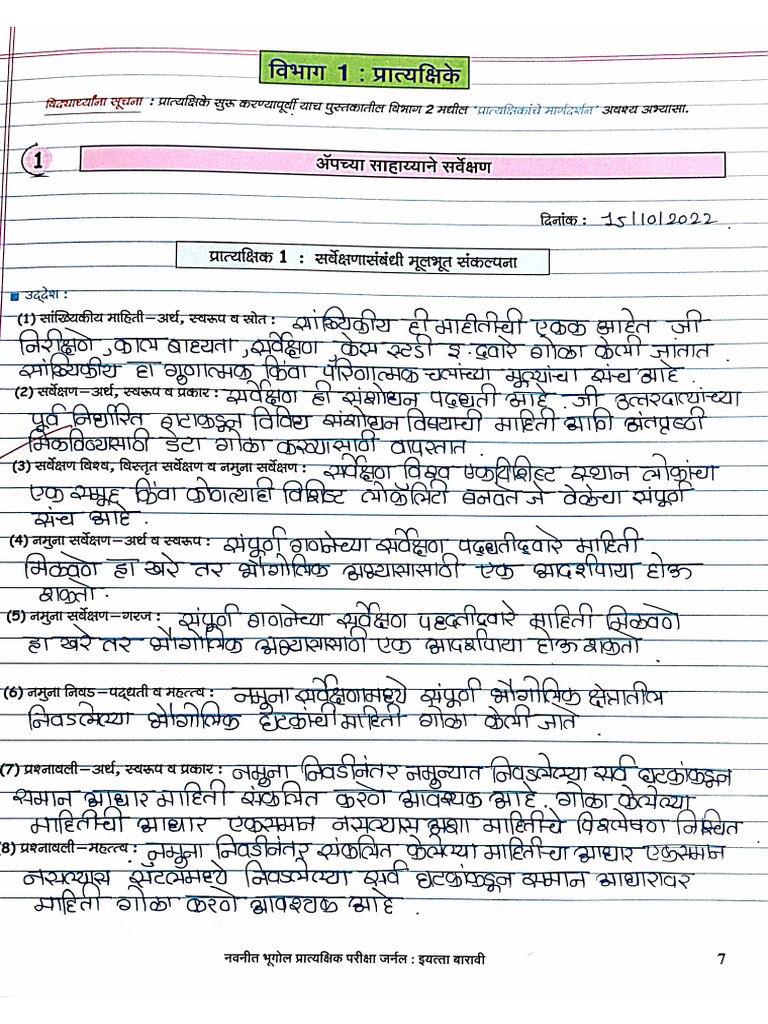 विभाग 1 : प्रात्यक्षिके
विद्यार्थ्यांना सूचना : प्रात्यक्षिके सुरू करण्यापूर्वी याच पुस्तकातील विभाग 2 मधील 'प्रात्यक्षिकांचे मार्गदर्शन' अवश्य अभ्यासा.
1 ॲपच्या साहाय्याने सर्वेक्षण
दिनांक : 15/10/2022
प्रात्यक्षिक 1 : सर्वेक्षणासंबंधी मूलभूत संकल्पना
■ उद्देश :
(1) सांख्यिकीय माहिती–अर्थ, स्वरूप व स्रोत : सांख्यिकीय ही माहीतीची एकक आहेत जी
निरीक्षणे, काल बाहयता, सर्वेक्षण केस स्टडी इ. द्वारे गोळा केली जातात.
सांख्यिकीय हा गुणात्मक किंवा परिणात्मक चलांच्या मुल्यांचा संच आहे.
(2) सर्वेक्षण–अर्थ, स्वरूप व प्रकार : सर्वेक्षण ही संशोधन पद्धती आहे. जी उत्तरदात्यांच्या
पूर्व निर्धारित गटाकडून विविध संशोधन विषयाची माहिती आणि अंतदृष्टी
मिळविण्यासाठी डेटा गोळा करण्यासाठी वापरतात.
(3) सर्वेक्षण विश्व, विस्तृत सर्वेक्षण व नमुना सर्वेक्षण : सर्वेक्षण विश्व एक विशिष्ट स्थान लोकांचा
एक समूह किंवा कोणत्याही विशिष्ट लोकॅलिटी बनवत जे वेळेचा संपूर्ण
संच आहे.
(4) नमुना सर्वेक्षण–अर्थ व स्वरूप : संपूर्ण गणनेच्या सर्वेक्षण पद्धतीद्वारे माहिती
मिळवणे हा खरे तर भौगोलिक अभ्यासासाठी एक आदर्शपाया होऊ
शकतो.
(5) नमुना सर्वेक्षण–गरज : संपूर्ण गणनेच्या सर्वेक्षण पद्धतीद्वारे माहिती मिळवणे
हा खरे तर भौगोलिक अभ्यासासाठी एक आदर्शपाया होऊ शकतो
(6) नमुना निवड–पद्धती व महत्त्व : नमुना सर्वेक्षणामध्ये संपूर्ण भौगोलिक क्षेत्रातील
निवडलेल्या भौगोलिक घटकांची माहिती गोळा केली जाते
(7) प्रश्नावली–अर्थ, स्वरूप व प्रकार : नमुना निवडीनंतर नमुन्यात निवडलेल्या सर्व घटकांकडून
समान आधार माहिती संकलित करणे आवश्यक आहे. गोळा केलेल्या
माहितीची आधार एकसमान नसल्यास अशा माहितीचे विश्लेषण निश्चित
8) प्रश्नावली–महत्त्व : नुमुना निवडीनंतर संकलित केलेल्या माहितीचा आधार एकसमान
नसल्यास निवडलेल्या सर्व घटकांकडून समान आधारावर
माहिती गोळा करणे आवश्यक आहे.
नवनीत भूगोल प्रात्यक्षिक परीक्षा जर्नल : इयत्ता बारावी 7